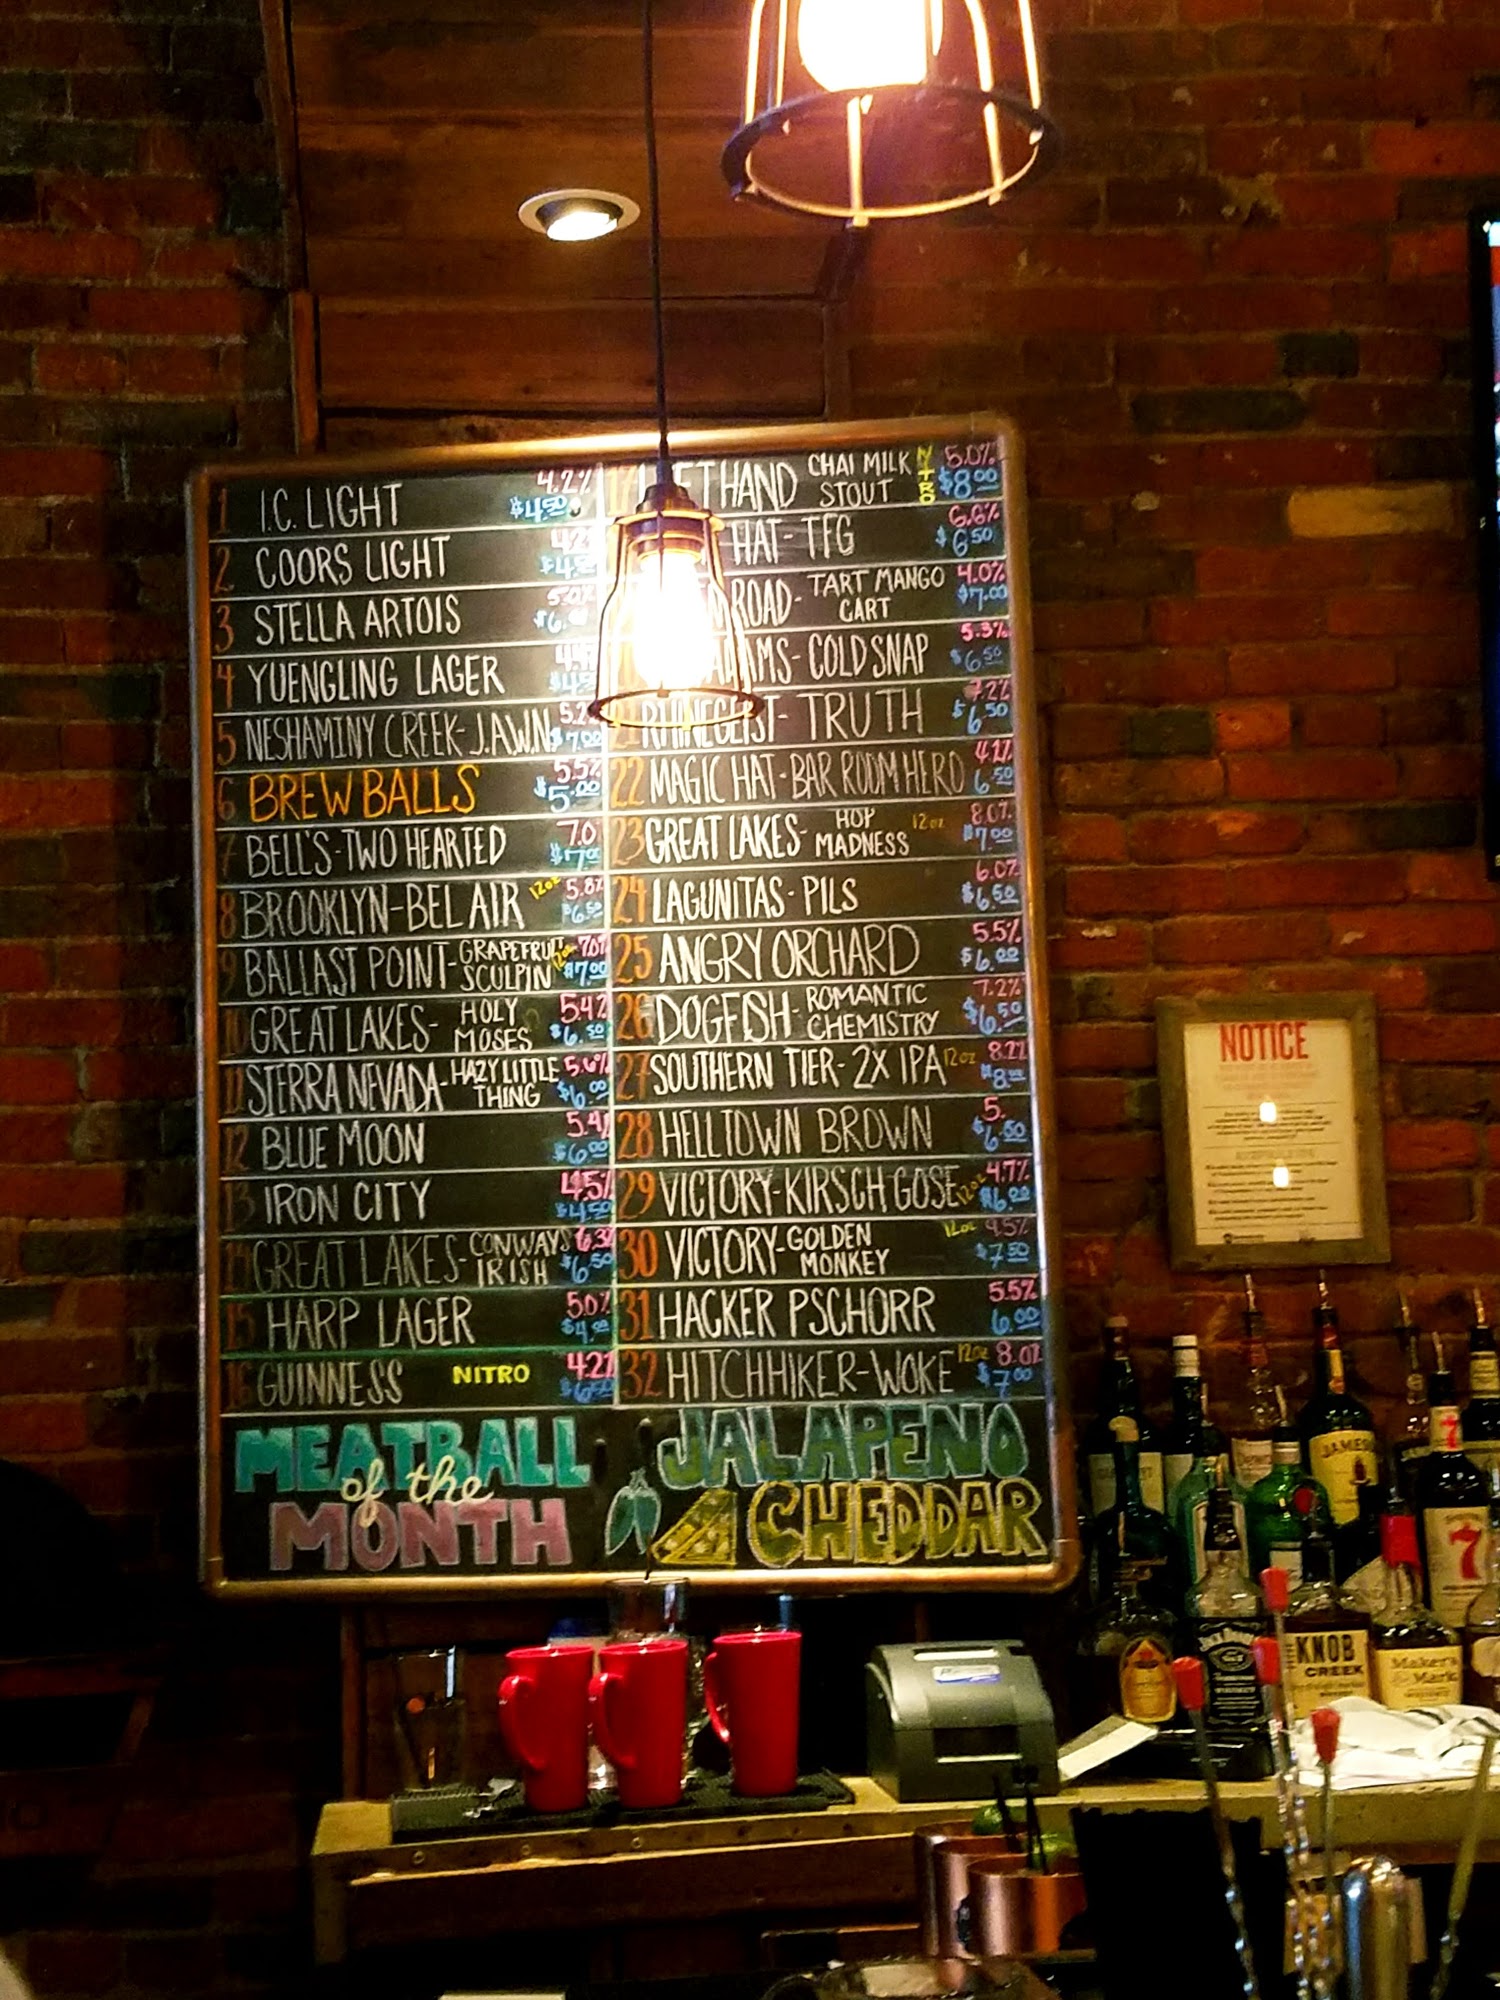 1 I.C. LIGHT 4.2% $4.50
2 COORS LIGHT
3 STELLA ARTOIS
4 YUENGLING LAGER
5 NESHAMINY CREEK- J.A.W.N. $7.00
6 BREW BALLS 5.5% $5.00
7 BELL'S-TWO HEARTED 7.0 $7.00
8 BROOKLYN-BEL AIR 12oz 5.8% $6.50
9 BALLAST POINT- GRAPEFRUIT SCULPIN 12oz 7.0% $7.00
10 GREAT LAKES- HOLY MOSES 5.4% $6.50
11 SIERRA NEVADA- HAZY LITTLE THING $6.00
12 BLUE MOON 5.4% $6.00
13 IRON CITY 4.5% $4.50
14 GREAT LAKES- CONWAYS IRISH 6.3% $6.50
15 HARP LAGER 5.0%
16 GUINNESS NITRO 4.2% $6.50
17 HAND CHAI MILK STOUT NITRO 5.0% $8.00
HAT- TFG 6.6% $6.50
ROAD- TART MANGO CART 4.0% $7.00
COLD SNAP 5.3% $6.50
21 RHINEGEIST- TRUTH 7.2% $6.50
22 MAGIC HAT-BAR ROOM HERO 6.50
23 GREAT LAKES- HOP MADNESS 12oz 8.0% $7.00
24 LAGUNITAS- PILS 6.0% $6.50
25 ANGRY ORCHARD 5.5% $6.00
26 DOGFISH- ROMANTIC CHEMISTRY 7.2% $6.50
27 SOUTHERN TIER- 2X IPA 12oz 8.2% $8.00
28 HELLTOWN BROWN 5. $6.50
29 VICTORY-KIRSCH GOSE 12oz 4.7% $6.00
30 VICTORY- GOLDEN MONKEY 12oz 9.5% $7.50
31 HACKER PSCHORR 5.5% 6.00
32 HITCHHIKER-WOKE 12oz 8.0% $7.00
MEATBALL of the MONTH
JALAPENO CHEDDAR
NOTICE
JAMES
7
JACK DANIEL'S
KNOB CREEK
Maker's Mark